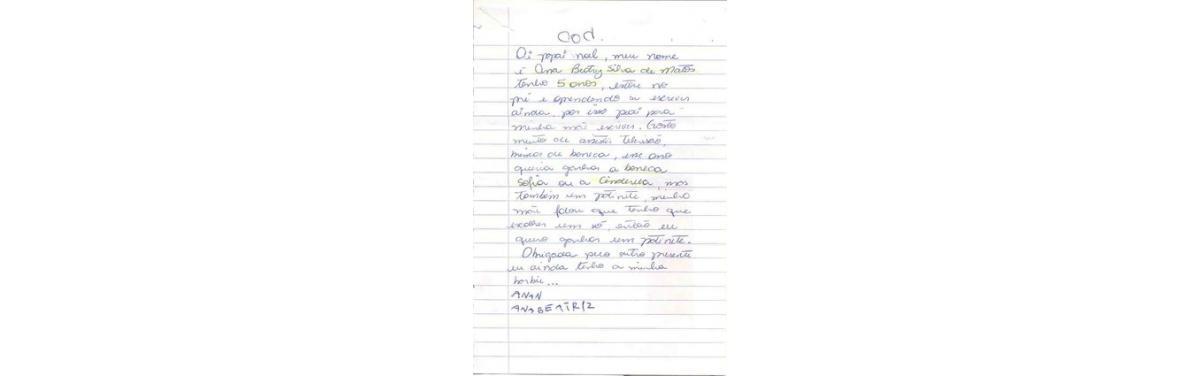 Cod.
Oi papai noel, meu nome
é Ana Beatriz Silva de Matos
tenho 5 anos, estou no
pré e aprendendo a escrever
ainda, por isso pedi para
minha mãe escrever. Gosto
muito de assistir televisão,
brincar de boneca, esse ano
queria ganhar a boneca
Sofia ou a Cinderela, mas
também um patinete, minha
mãe falou que tenho que
escolher um só, então eu
quero ganhar um patinete.
Obrigada pelo outro presente
eu ainda tenho a minha
barbie...
ANAN
ANABEATRIZ